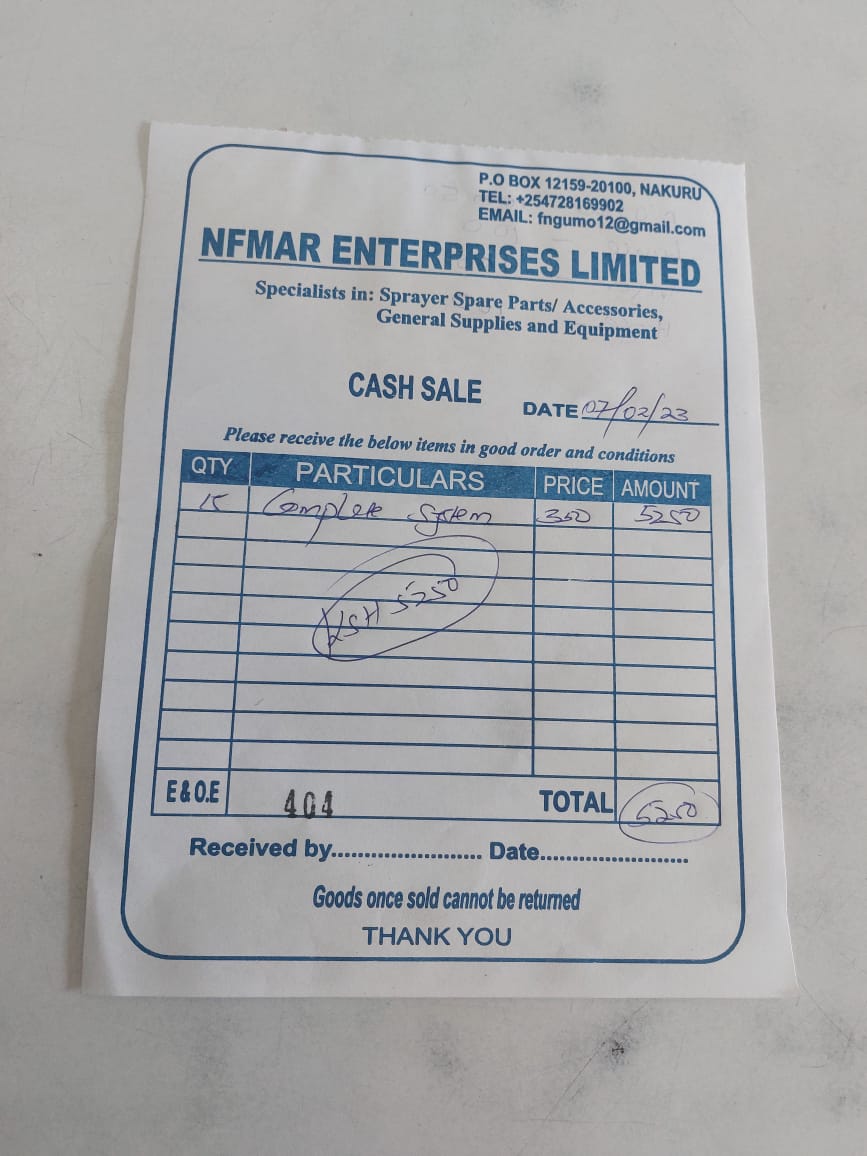 P.O BOX 12159-20100, NAKURU
TEL: +254728169902
EMAIL: fngumo12@gmail.com
NFMAR ENTERPRISES LIMITED
Specialists in: Sprayer Spare Parts/ Accessories,
General Supplies and Equipment
CASH SALE
DATE 07/02/23
Please receive the below items in good order and conditions
QTY PARTICULARS PRICE AMOUNT
15 Complete System 350 5250
KSH 5250
E & O.E 404 TOTAL 5250
Received by.......................... Date..........................
Goods once sold cannot be returned
THANK YOU